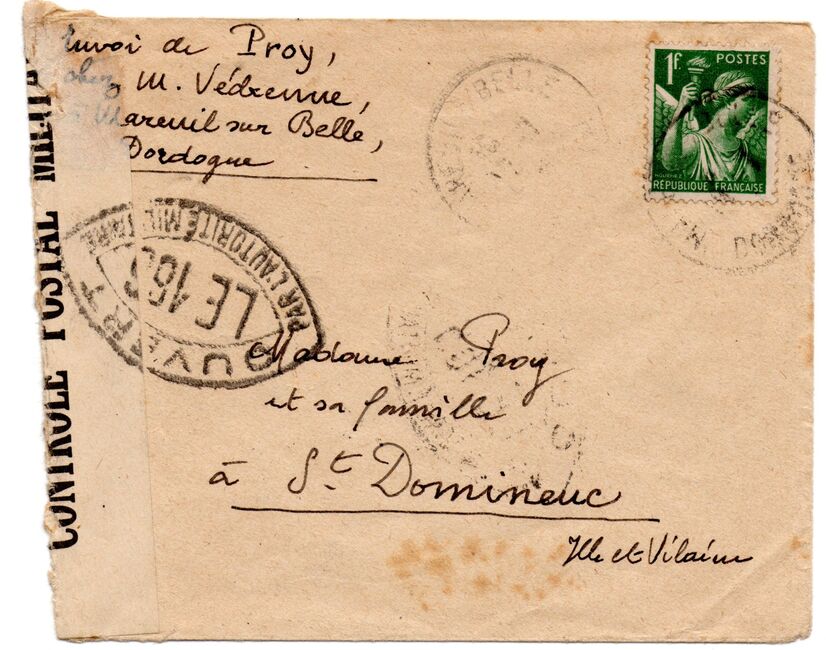 Envoi de Proy,
chez M. Védrenne,
Mareuil sur Belle,
Dordogne
1F. POSTES
RÉPUBLIQUE FRANÇAISE
BELLE
CONTROLE POSTAL
OUVERT
PAR L'AUTORITÉ MILITAIRE
LE 16
Madame Proy
et sa famille
à St. Domineuc
Ille et Vilaine